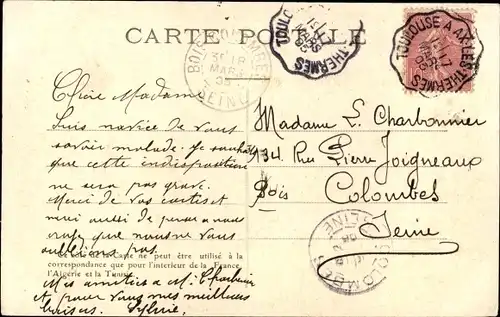 CARTE POSTALE
BOIS COLOMBES
3E 18
MARS
05
SEINE
TOULOUSE
THERMES
TOULOUSE A AX-LES-THERMES
Chère Madame
Suis navrée de vous
savoir malade. Je souhaite
que cette indisposition
ne sera pas grave.
Merci de vos cartes et
moi aussi de penser a nous
que nous ne vous
oublions pas
Ce côté de la Carte ne peut être utilisé à la
correspondance que pour l'intérieur de la France,
l'Algérie et la Tunisie
Mes amitiés a M. Charbonnier
et pour vous mes meilleurs
baisers. Sylvie.
Madame L. Charbonnier
134 Rue Pierre Joigneaux
Bois Colombes
Seine
COLOMBES